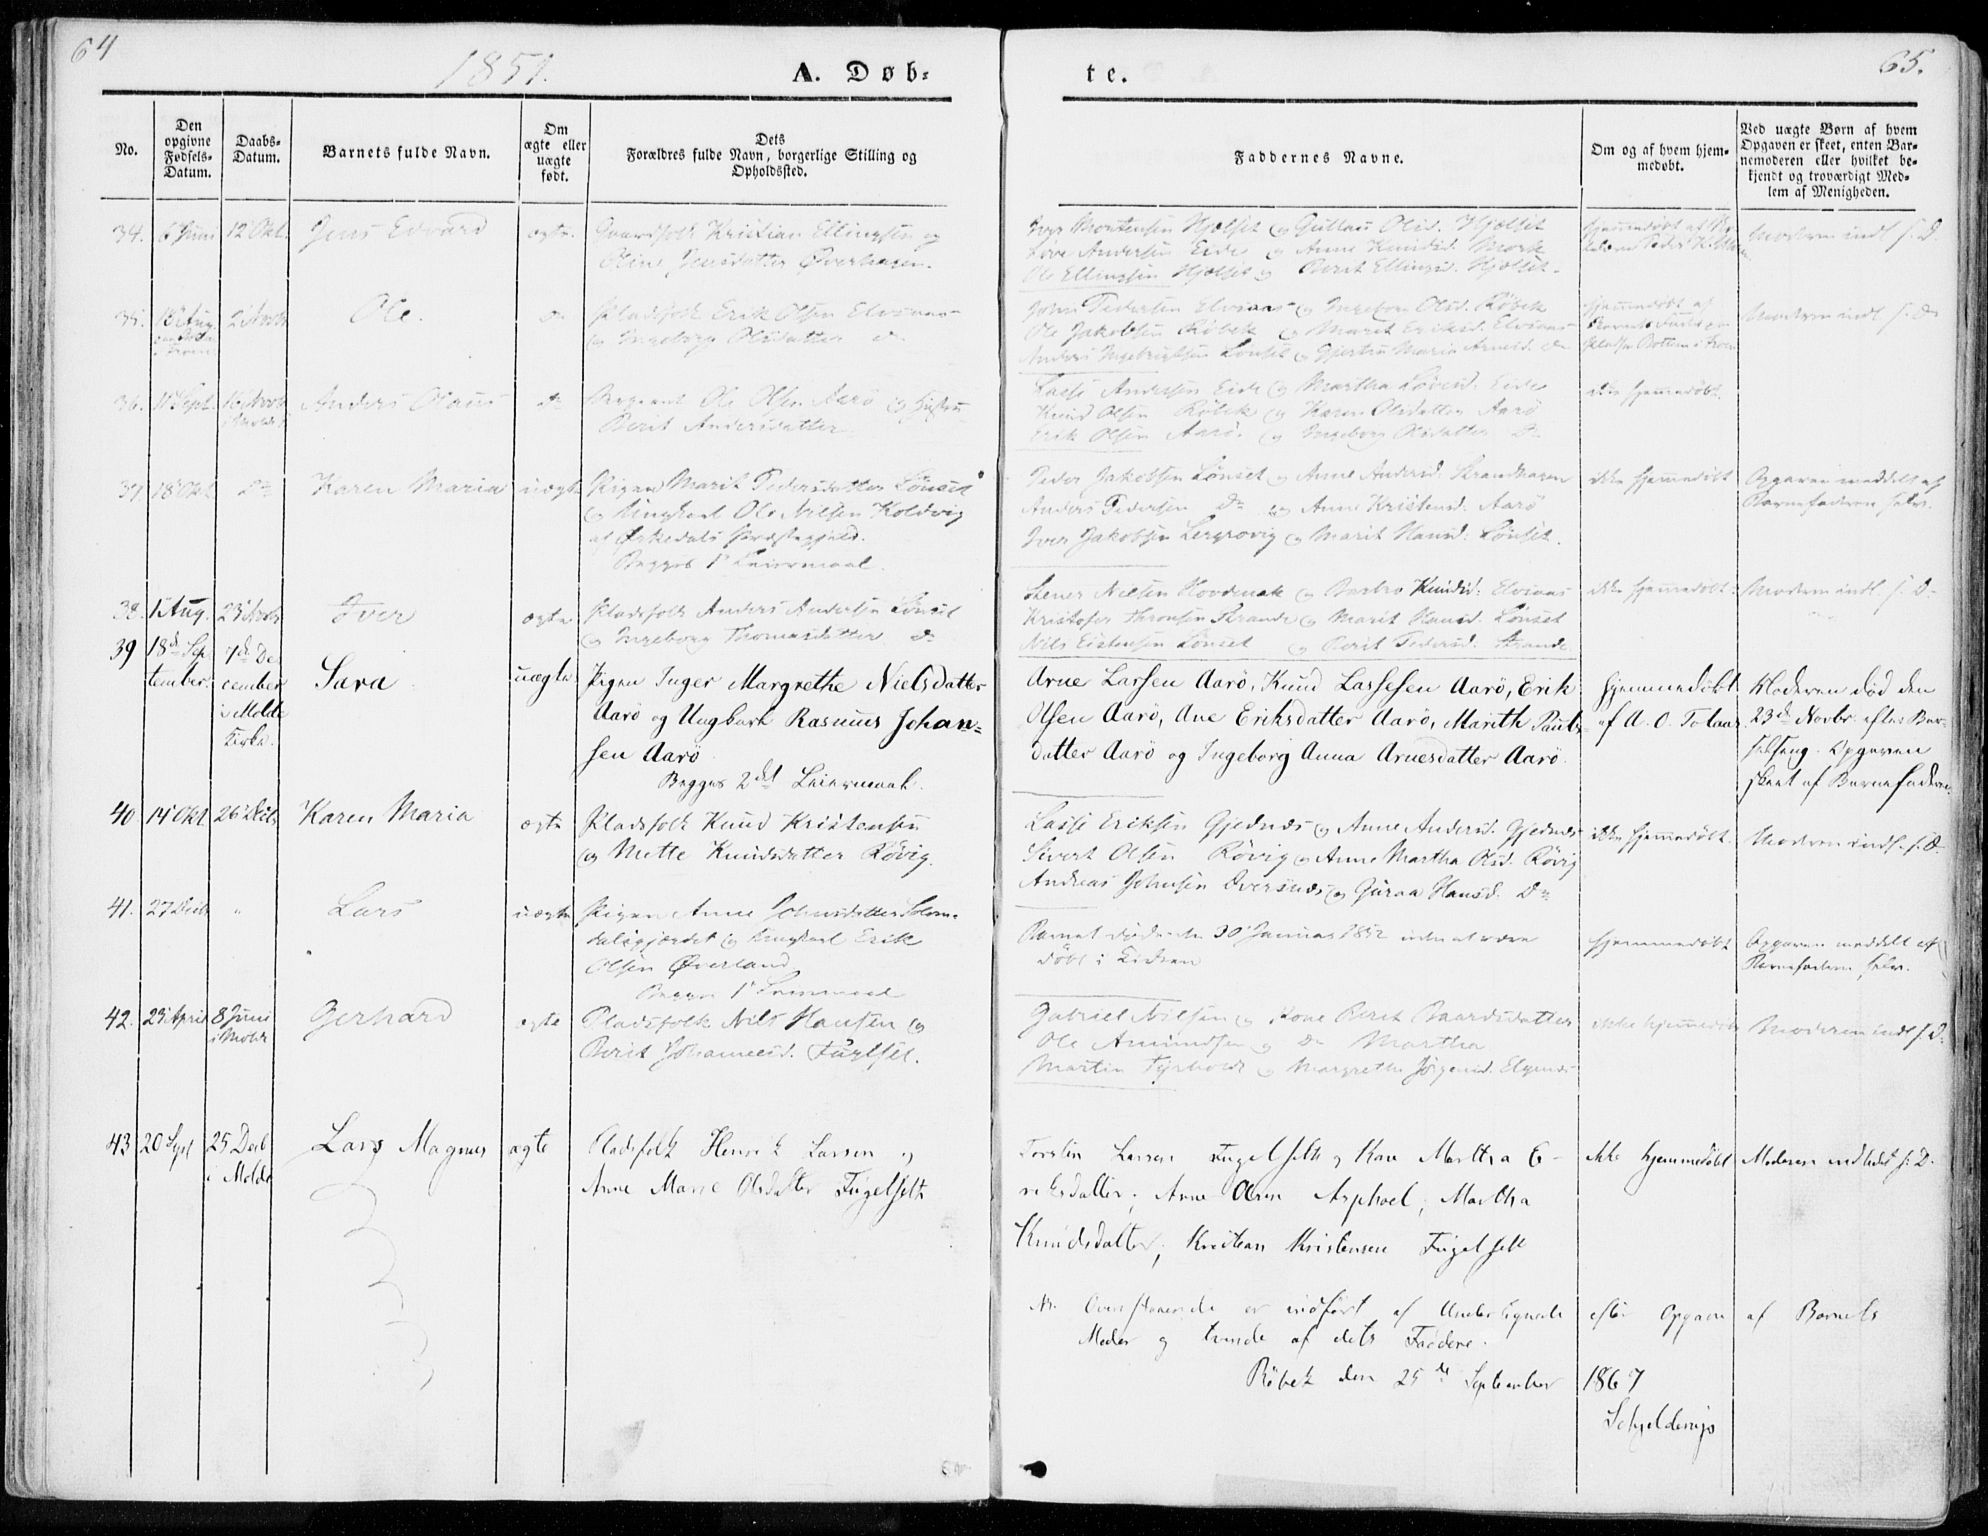 64
1851.
A. Døb-
te.
65.
No.
Den opgivne Fødsels-Datum.
Daabs-Datum.
Barnets fulde Navn.
Om ægte eller uægte født.
Dets
Forældres fulde Navn, borgerlige Stilling og
Opholdssted.
Faddernes Navne.
Om og af hvem hjem-
medøbt.
Ved uægte Børn af hvem
Opgaven er skeet, enten Bar-
nemoderen eller hvilket be-
kjendt og troværdigt Med-
lem af Menigheden.
34. 6 Juni 12 Okt. Jens Edvard ægte Gaardfolk Kristian Ellingsen og
Oline Jensdatter Øverhagen.
Mortensen Hjelset og Olsd. Hjelset
Andersen Eide og Anne Knudsd. Mork
Ole Ellingsen Hjelset og Berit Ellingsd. Hjelset.
hjemmedøbt af
Moderen indl. s. D.
35. 13 Aug. 2 Novb. Ole. do Pladsfolk Erik Olsen Elvsaas
og Ingeborg Olsdatter do
John Pedersen Elvsaas og Ingeborg Olsd. Røbek
Ole Jakobsen Røbek og Marit Eriksd. Elvsaas
Anders Ingebrigtsen Lønset og Gjertru Maria Arnesd. do
hjemmedøbt af
Moderen indl. s. D.
36. 11 Sept. 16 Novb. i Molde Anders Olaus do Ole Olsen Aarø og Hustru
Berit Andersdatter
Lasse Andersen Eide og Martha Eide
Knud Olsen Røbek og Karen Olsdatter Aarø
Erik Olsen Aarø og Ingeborg Olsdatter Do
ikke hjemmedøbt.
37. 18 Okt. Do Karen Maria uægte Pigen Marit Pedersdatter Lønset
og Ungkarl Ole Nilsen Koldvig
af Præstegjeld.
Begges 1 Leiermaal.
Peder Jakobsen Lønset og Anne Andersd. Strandhagen
Anders Pedersen Do og Anne Kristensd. Aarø
Iver Jakobsen Lergrovig og Marit Hansd. Lønset.
ikke hjemmedøbt
Opgaven meddelt af
Barnefaderen selv.
38. 1 Aug. 23 Novb. Iver ægte Pladsfolk Anders Andersen Lønset
og Ingeborg Thomasdatter do
Nilsen Hovdenak og Barbro Knudsd. Elvsaas
Kristofer Thronsen Strande og Marit Hansd. Lønset
Nils Eistensen Lønset og Berit Pedersd. Strande
ikke hjemmedøbt
Moderen indl. s. D.
39 18d Sep
tember. 7d De
cember
i Molde
Kirke. Sara uægte Pigen Inger Margrethe Nielsdatter
Aarø og Ungkarl Rasmus Johan-
sen Aarø
Begges 2det Leiermaal.
Arne Larsen Aarø, Knud Lassesen Aarø, Erik
Olsen Aarø, Ane Eriksdatter Aarø, Marith Pauls-
datter Aarø og Ingeborg Anna Arnesdatter Aarø.
Hjemmedøbt
af A. O.
Moderen død den
23de Novbr. efter Bar-
selseng. Opgaven
skeet af Barnefaderen.
40 14 Okt. 26 Decb. Karen Maria ægte Pladsfolk Knud Kristensen
og Mette Knudsdatter Røvig.
Lasse Eriksen Gjednæs og Anne Andersd. Gjednæs
Sivert Olsen Røvig og Anne Martha Olsd. Røvig
Andreas Johnsen Oversnæs og Guraa Hansd. Do
ikke hjemmedøbt.
Moderen indl. s. D.
41. 27 Decb. " Lars uægte Pigen Anne Johnsdatter Solem-
dalsgjerdet og Ungkarl Erik
Olsen Øverland
Begges 1 Leiermaal
Barnet døde den 30 Januar 1852 uden at være
døbt i Kirken
hjemmedøbt
Opgaven meddelt af
Barnefaderen selv.
42. 29 April 8 Juni
i Molde Gerhard ægte Pladsfolk Nils Hansen og
Berit Johannesd. Fuglset.
Gabriel Nilsen og Kone Berit Baardsdatter
Ole Amundsen og Do Martha
Martin og Margrethe Jørgensd.
ikke hjemmedøbt
Moderen indl. s. D.
43 20 Sept 25 Decb
i Molde Lars Magnus ægte Pladsfolk Henrik Larsen og
Anne Marie Olsdatter Fugelseth
Torstein Larsen Fugelseth og Kone Martha E-
riksdatter, Arne Olsen Asphoel, Martha
Knudsdatter, Kristian Kristensen Fugelseth
ikke hjemmedøbt
Moderen indledet s. D.
Nb. Ovenstaaende er indført af Undertegnede efter Opgave af Barnets
Moder og tvende af dets Faddere.
Røbek den 25de September 1867
Schjelderup